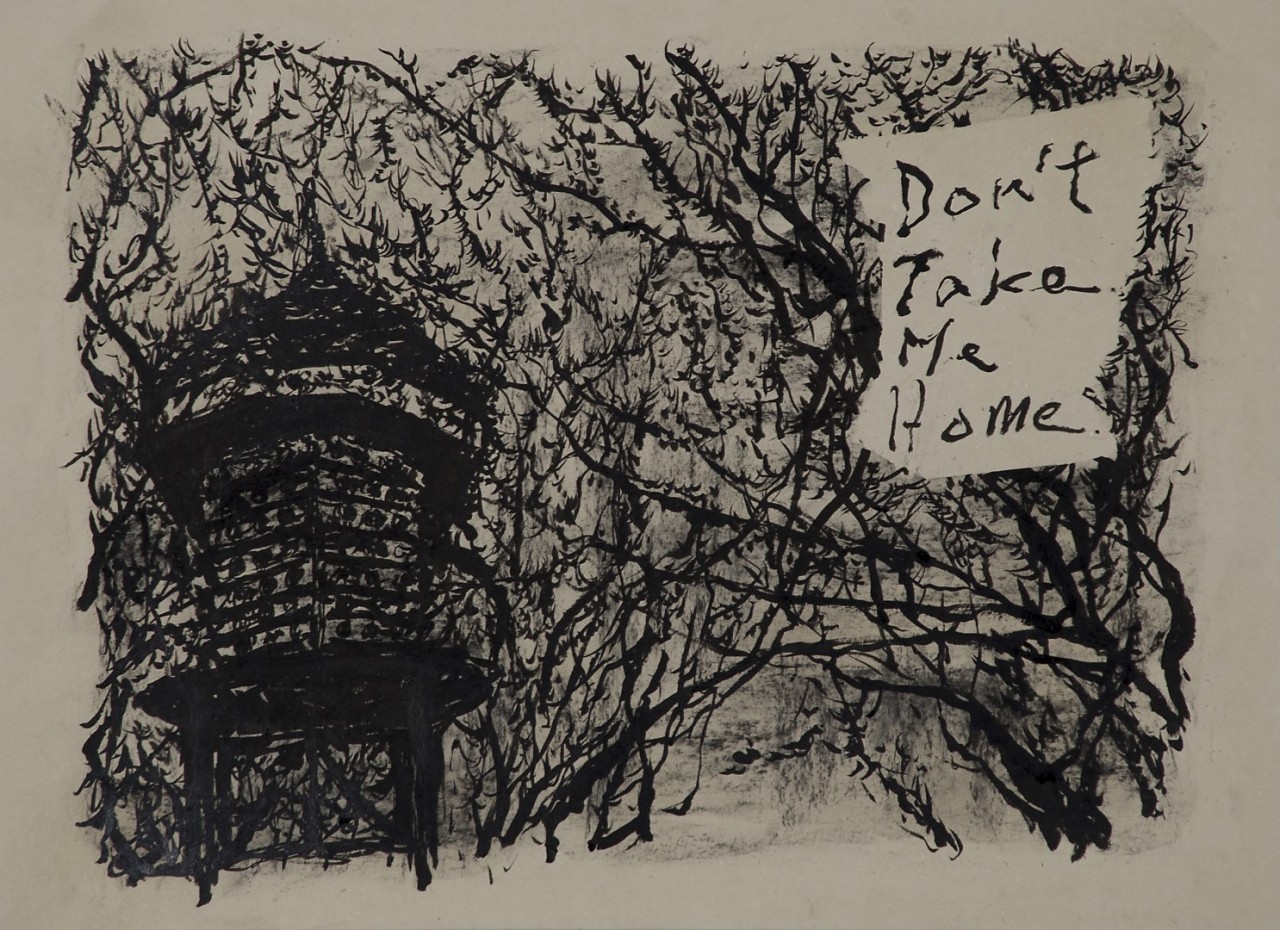 Don't
Take
Me
Home